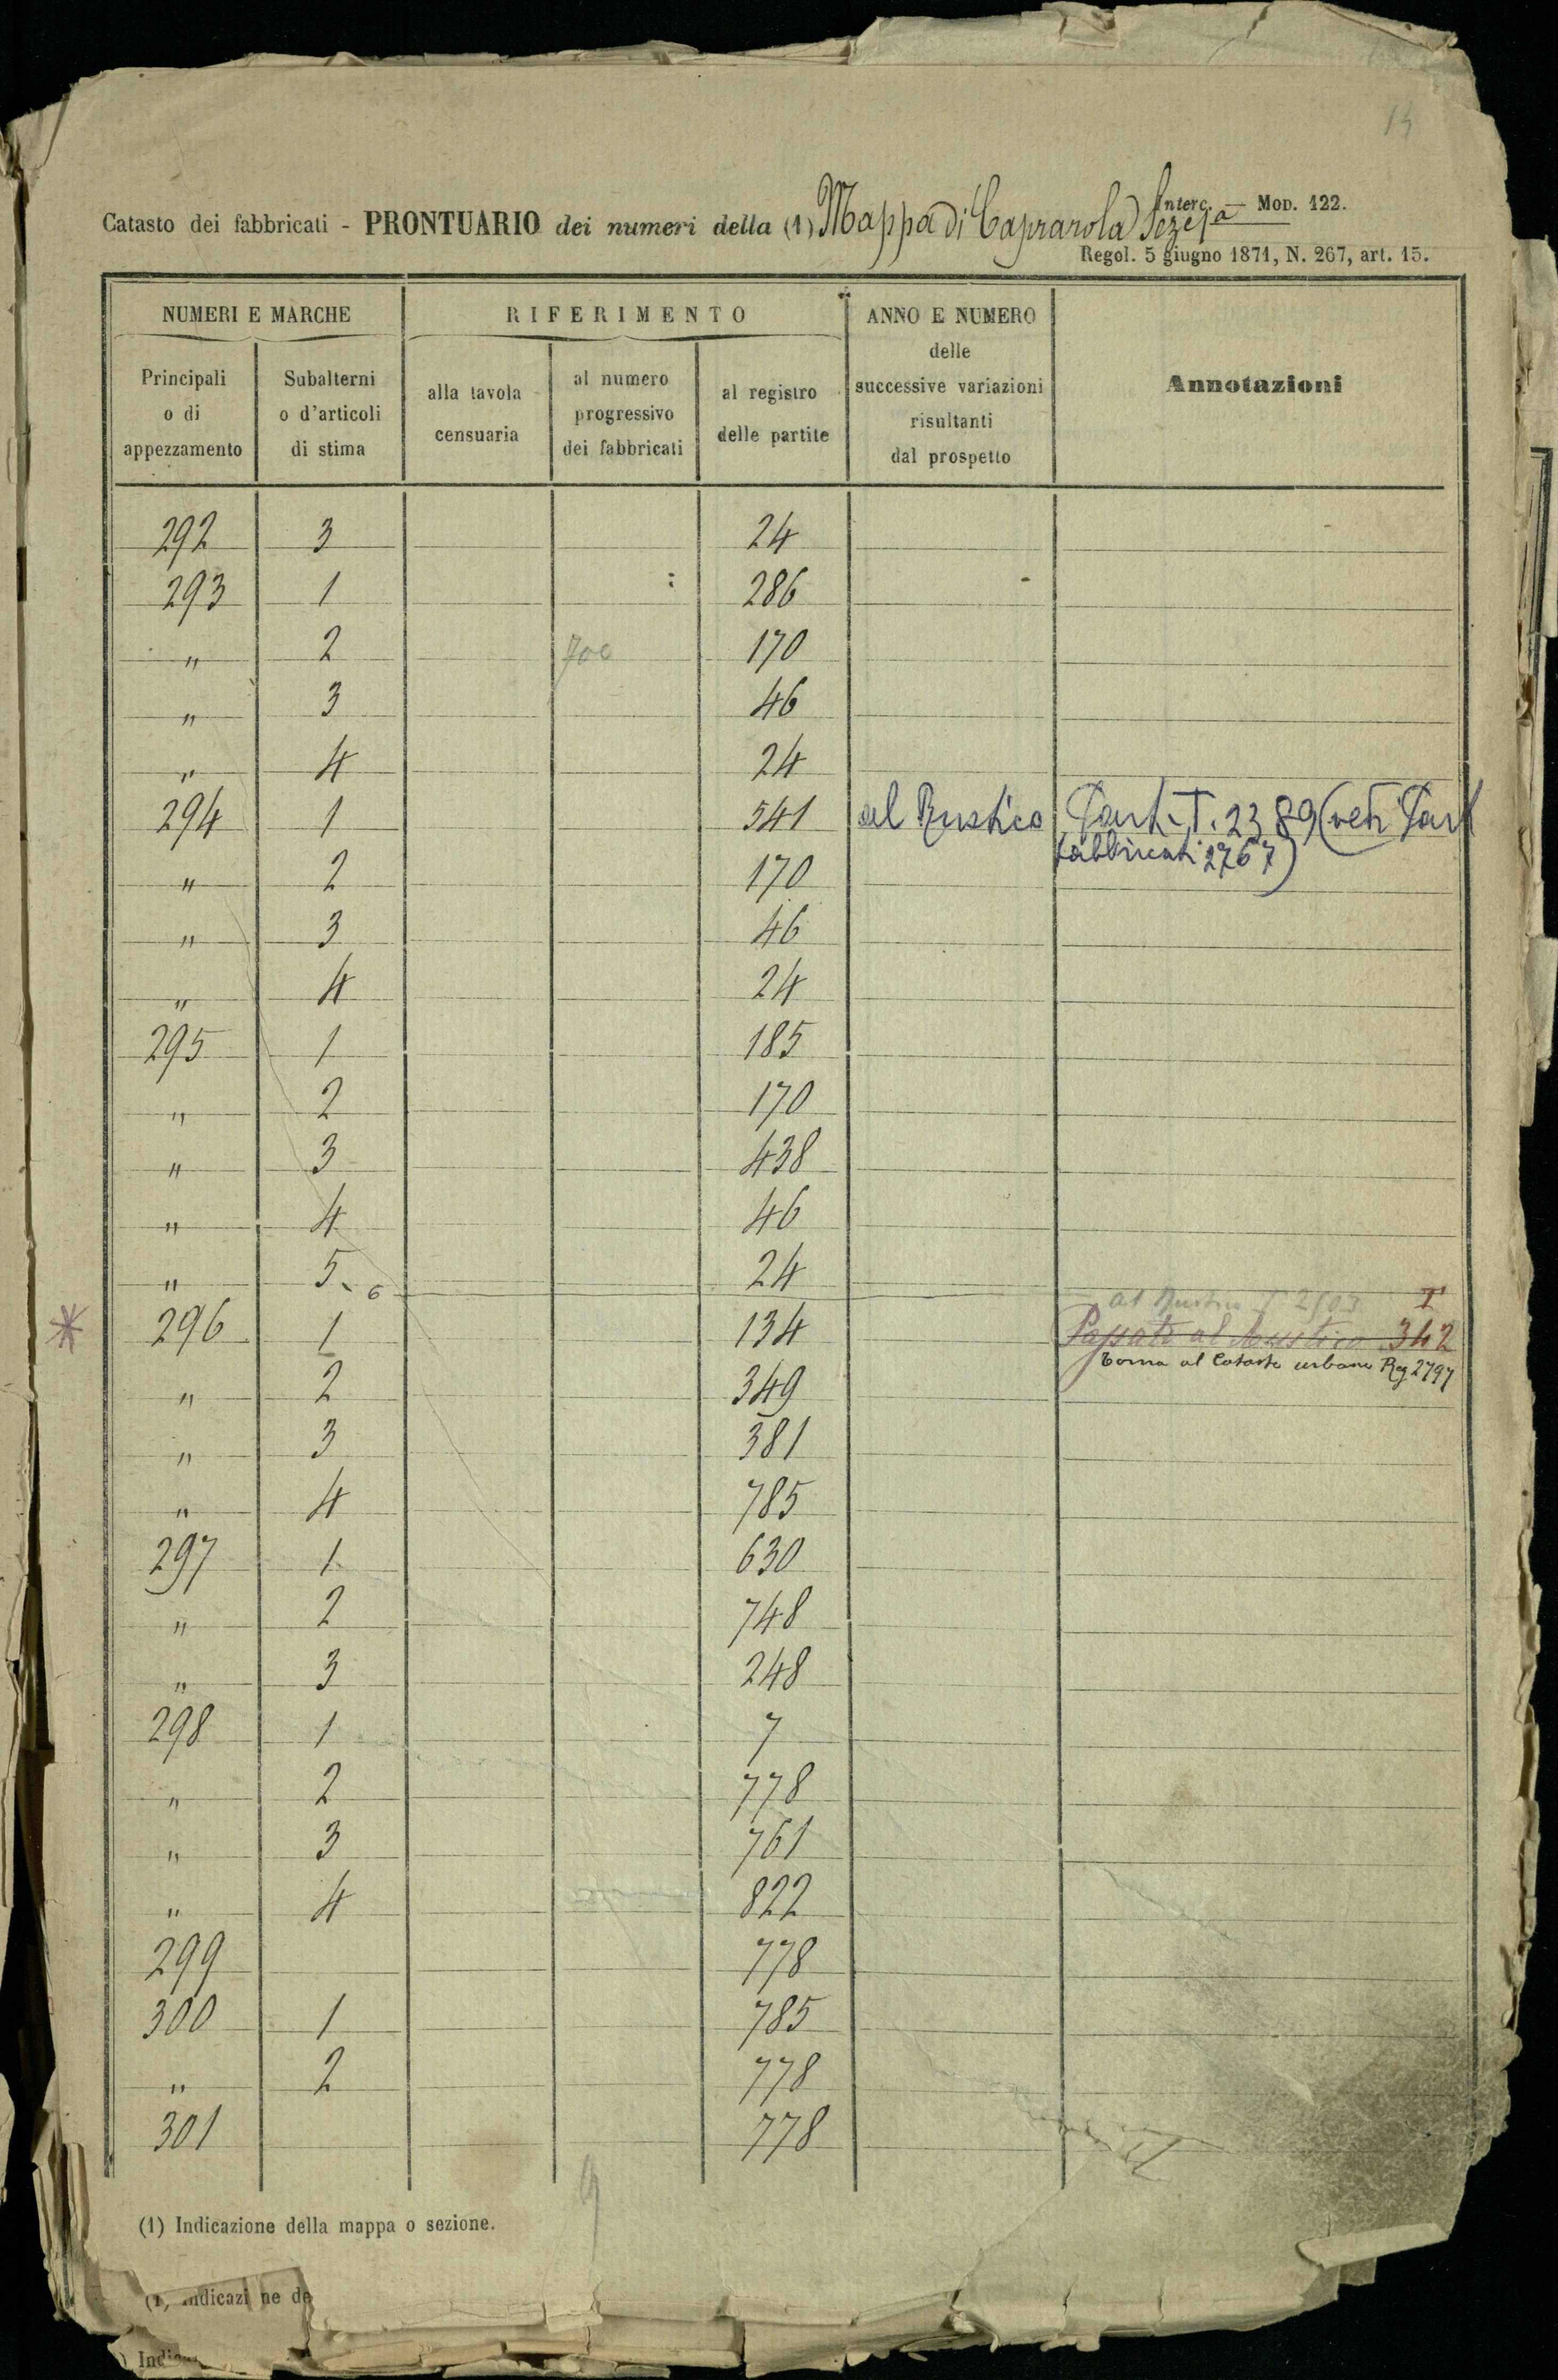 14
Interc. — Mod. 122.
Catasto dei fabbricati - PRONTUARIO dei numeri della (1) Mappa di Caprarola
Regol. 5 giugno 1871, N. 267, art. 15.
NUMERI E MARCHE RIFERIMENTO ANNO E NUMERO delle successive variazioni risultanti dal prospetto Annotazioni
Principali o di appezzamento Subalterni o d'articoli di stima alla tavola censuaria al numero progressivo dei fabbricati al registro delle partite
292 3 24
293 1 286
" 2 700 170
" 3 46
" 4 24
294 1 541 al Rustico Part. T. 2389 (vedi Part
fabbricati 2767)
" 2 170
" 3 46
" 4 24
295 1 185
" 2 170
" 3 438
" 4 46
" 5 24
6
al Rustico T 2503 T
296 1 134 Passato al Rustico 342
Torna al Catasto urbano Reg 2797
" 2 349
" 3 381
" 4 785
297 1 630
" 2 748
" 3 248
298 1 7
" 2 778
" 3 761
" 4 822
299 778
300 1 785
" 2 778
301 778
(1) Indicazione della mappa o sezione.
(1) Indicazione de
) Indic